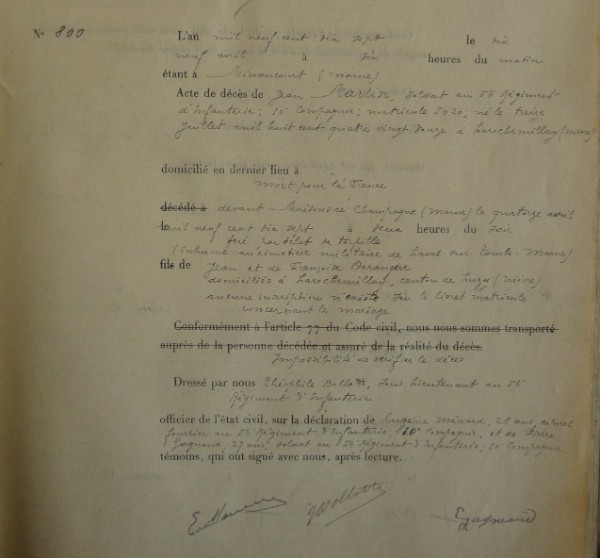 N° 800
L'an mil neuf cent dix sept le dix
neuf avril à dix heures du matin
étant à Minaucourt (Marne)
Acte de décès de Jean Martin, soldat au 56 Régiment
d'Infanterie; 10 Compagnie; matricule 5020, né le treize
Juillet mil huit cent quatre vingt douze à Larochemillay (nièvre)
domicilié en dernier lieu à
mort pour la France
décédé à devant Maisons de Champagne (Marne) le quatorze avril
le mil neuf cent dix sept à deux heures du soir
tué par éclat de torpille
(inhumé au cimetière militaire de Laval sur Tourbe - Marne)
fils de Jean et de Françoise
domiciliés à Larochemillay, canton de Luzy (nièvre)
aucune inscription n'existe sur le livret matricule
concernant le mariage
Conformément à l'article 77 du Code civil, nous nous sommes transporté
auprès de la personne décédée et assuré de la réalité du décès.
Impossibilité de vérifier le décès
Dressé par nous Théophile Bollotte, sous Lieutenant au 56
Régiment d'Infanterie
officier de l'état civil, sur la déclaration de Eugène Ménard, 28 ans, caporal
fourrier au 56 Régiment d'Infanterie, 10e Compagnie, et de
27 ans, soldat au 56 Régiment d'Infanterie 10 Compagnie
témoins, qui ont signé avec nous, après lecture.